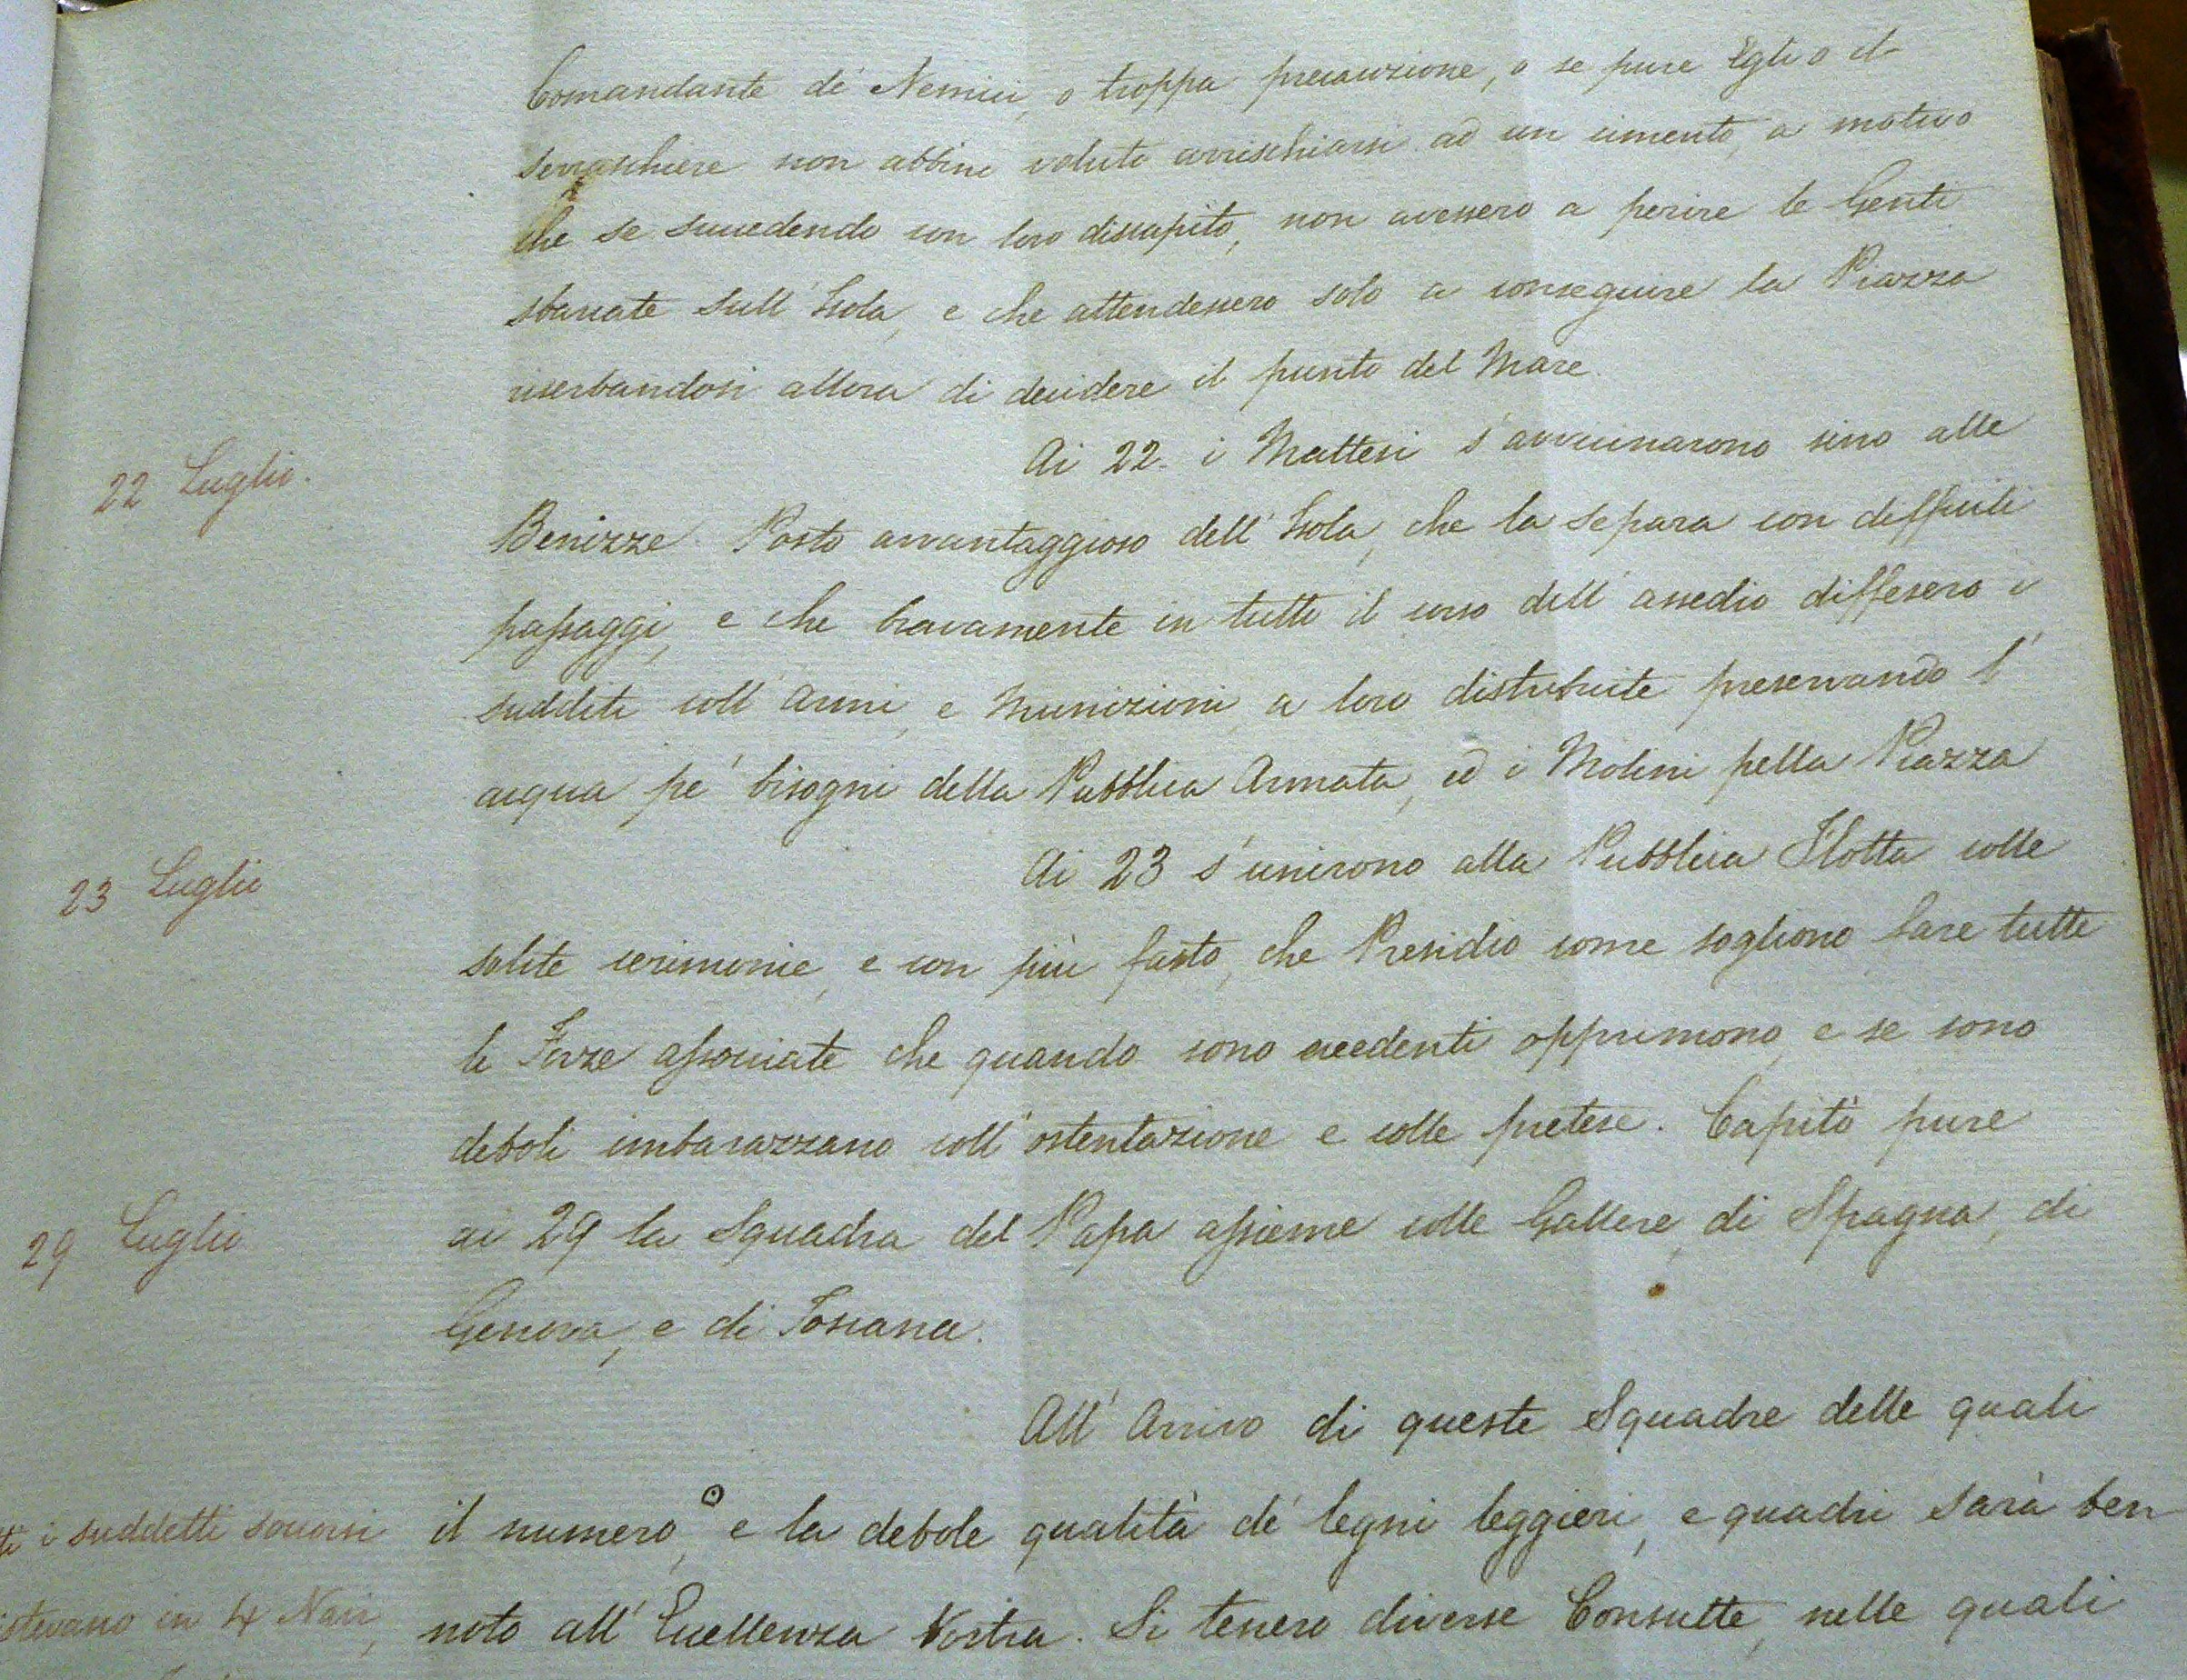 Comandante de' Nemici, o troppa precauzione, o se pure Egli o il
serraschiere non abbino voluto arrischiarsi ad un cimento, a motivo
che se succedendo con loro discapito, non avessero a perire le Genti
sbarcate sull' Isola, e che attendessero solo a conseguire la Piazza
riserbandosi allora di decidere il punto del Mare.
22 Luglio.
Ai 22. i Maltesi s'avvicinarono sino alle
Benizze. Posto avvantaggioso dell' Isola, che la separa con difficili
passaggi, e che bravamente in tutto il corso dell' assedio diffesero i
sudditi coll' armi, e Munizioni, a loro distribuite preservando l'
acqua pe' bisogni della Pubblica Armata, ed i Molini pella Piazza
23 Luglio
Ai 23 s'unirono alla Pubblica Flotta colle
solite cerimonie, e con più fasto, che Presidio come sogliono fare tutte
le Forze associate che quando sono eccedenti opprimono, e se sono
deboli imbarazzano coll' ostentazione e colle pretese. Capitò pure
29 Luglio
ai 29 la Squadra del Papa assieme colle Gallere, di Spagna, di
Genova, e di Toscana.
All' Arrivo di queste Squadre delle quali
il numero, e la debole qualità de' legni leggieri, e quadri sarà ben
noto all' Eccellenza Vostra. Si tenero diverse Consulte, nelle quali
i suddetti soccorsi
in 4 Navi,